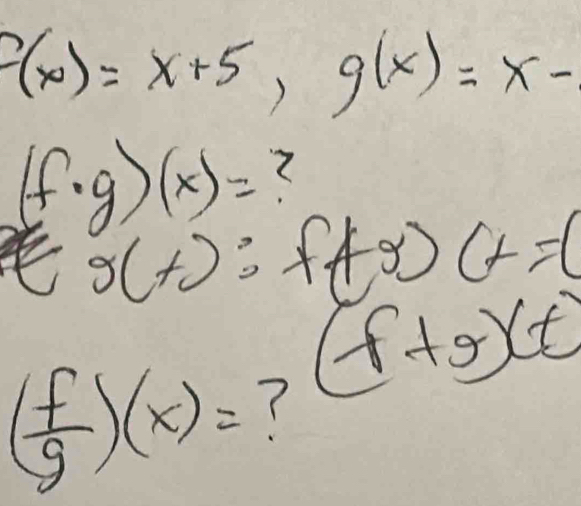 f(x) = x+5, g(x) = x -
(f·g)(x) = ?
g(t) : f(+g) (t = (
(f+g)(t)
(f/g)(x) = ?